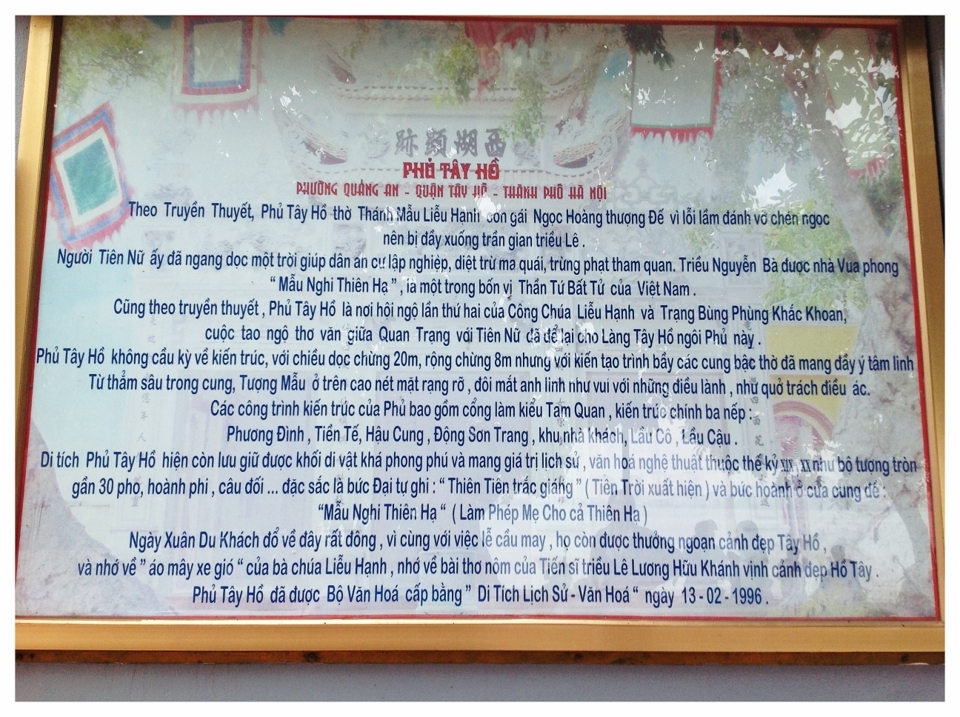 西湖顯跡
PHỦ TÂY HỒ
PHƯỜNG QUẢNG AN - QUẬN TÂY HỒ - THÀNH PHỐ HÀ NỘI
Theo Truyền Thuyết, Phủ Tây Hồ thờ Thánh Mẫu Liễu Hạnh con gái Ngọc Hoàng thượng Đế vì lỗi lầm đánh vỡ chén ngọc
nên bị đầy xuống trần gian triều Lê .
Người Tiên Nữ ấy đã ngang dọc một trời giúp dân an cư lập nghiệp, diệt trừ ma quái, trừng phạt tham quan. Triều Nguyễn Bà được nhà Vua phong
“ Mẫu Nghi Thiên Hạ ” , là một trong bốn vị Thần Tứ Bất Tử của Việt Nam .
Cũng theo truyền thuyết , Phủ Tây Hồ là nơi hội ngộ lần thứ hai của Công Chúa Liễu Hạnh và Trạng Bùng Phùng Khắc Khoan,
cuộc tao ngộ thơ văn giữa Quan Trạng với Tiên Nữ đã để lại cho Làng Tây Hồ ngôi Phủ này .
Phủ Tây Hồ không cầu kỳ về kiến trúc, với chiều dọc chừng 20m, rộng chừng 8m nhưng với kiến tạo trình bầy các cung bậc thờ đã mang đầy ý tâm linh
Từ thẳm sâu trong cung, Tượng Mẫu ở trên cao nét mặt rạng rỡ , đôi mắt anh linh như vui với những điều lành , như quở trách điều ác.
Các công trình kiến trúc của Phủ bao gồm cổng làm kiểu Tam Quan , kiến trúc chính ba nếp :
Phương Đình , Tiền Tế, Hậu Cung , Động Sơn Trang , khu nhà khách, Lầu Cô , Lầu Cậu .
Di tích Phủ Tây Hồ hiện còn lưu giữ được khối di vật khá phong phú và mang giá trị lịch sử , văn hoá nghệ thuật thuộc thế kỷ XIX , XX như bộ tượng tròn
gần 30 pho, hoành phi , câu đối ... đặc sắc là bức Đại tự ghi : “ Thiên Tiên trắc giáng ” ( Tiên Trời xuất hiện ) và bức hoành ở cửa cung đề :
“Mẫu Nghi Thiên Hạ “ ( Làm Phép Mẹ Cho cả Thiên Hạ )
Ngày Xuân Du Khách đổ về đây rất đông , vì cùng với việc lễ cầu may , họ còn được thưởng ngoạn cảnh đẹp Tây Hồ ,
và nhớ về ” áo mây xe gió “ của bà chúa Liễu Hạnh , nhớ về bài thơ nôm của Tiến sĩ triều Lê Lương Hữu Khánh vịnh cảnh đẹp Hồ Tây .
Phủ Tây Hồ đã được Bộ Văn Hoá cấp bằng ” Di Tích Lịch Sử - Văn Hoá “ ngày 13 - 02 - 1996 .